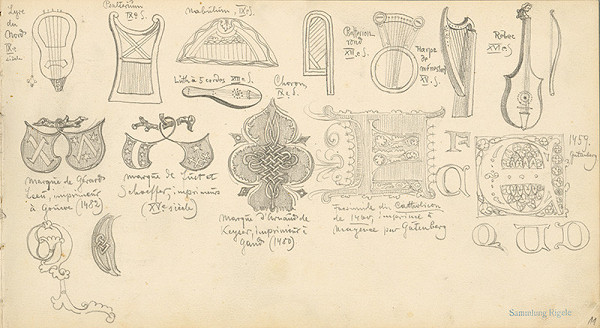 Lyre
du
Nord
IXe
siècle
Psalterium
IXe S.
Nabulum, IXe S.
Luth à 5 cordes XIIIe S.
Choron
IXe S.
Psalterion
rond
XIIe S.
Harpe
de
ménestrel
XVe S.
Rebec
XVIe S.
Marque de Gérard
Leeu, imprimeur
à Gouwe (1482)
Marque de Fust et
Schoeffer, imprimeurs
XVe siècle
Marque d'Arnaud de
Keyser, imprimeur à
Gand (1480)
Facsimile du Catholicon
de 1460, imprimé à
Mayence par Gutenberg
1459.
Gutenberg
Sammlung Rigele